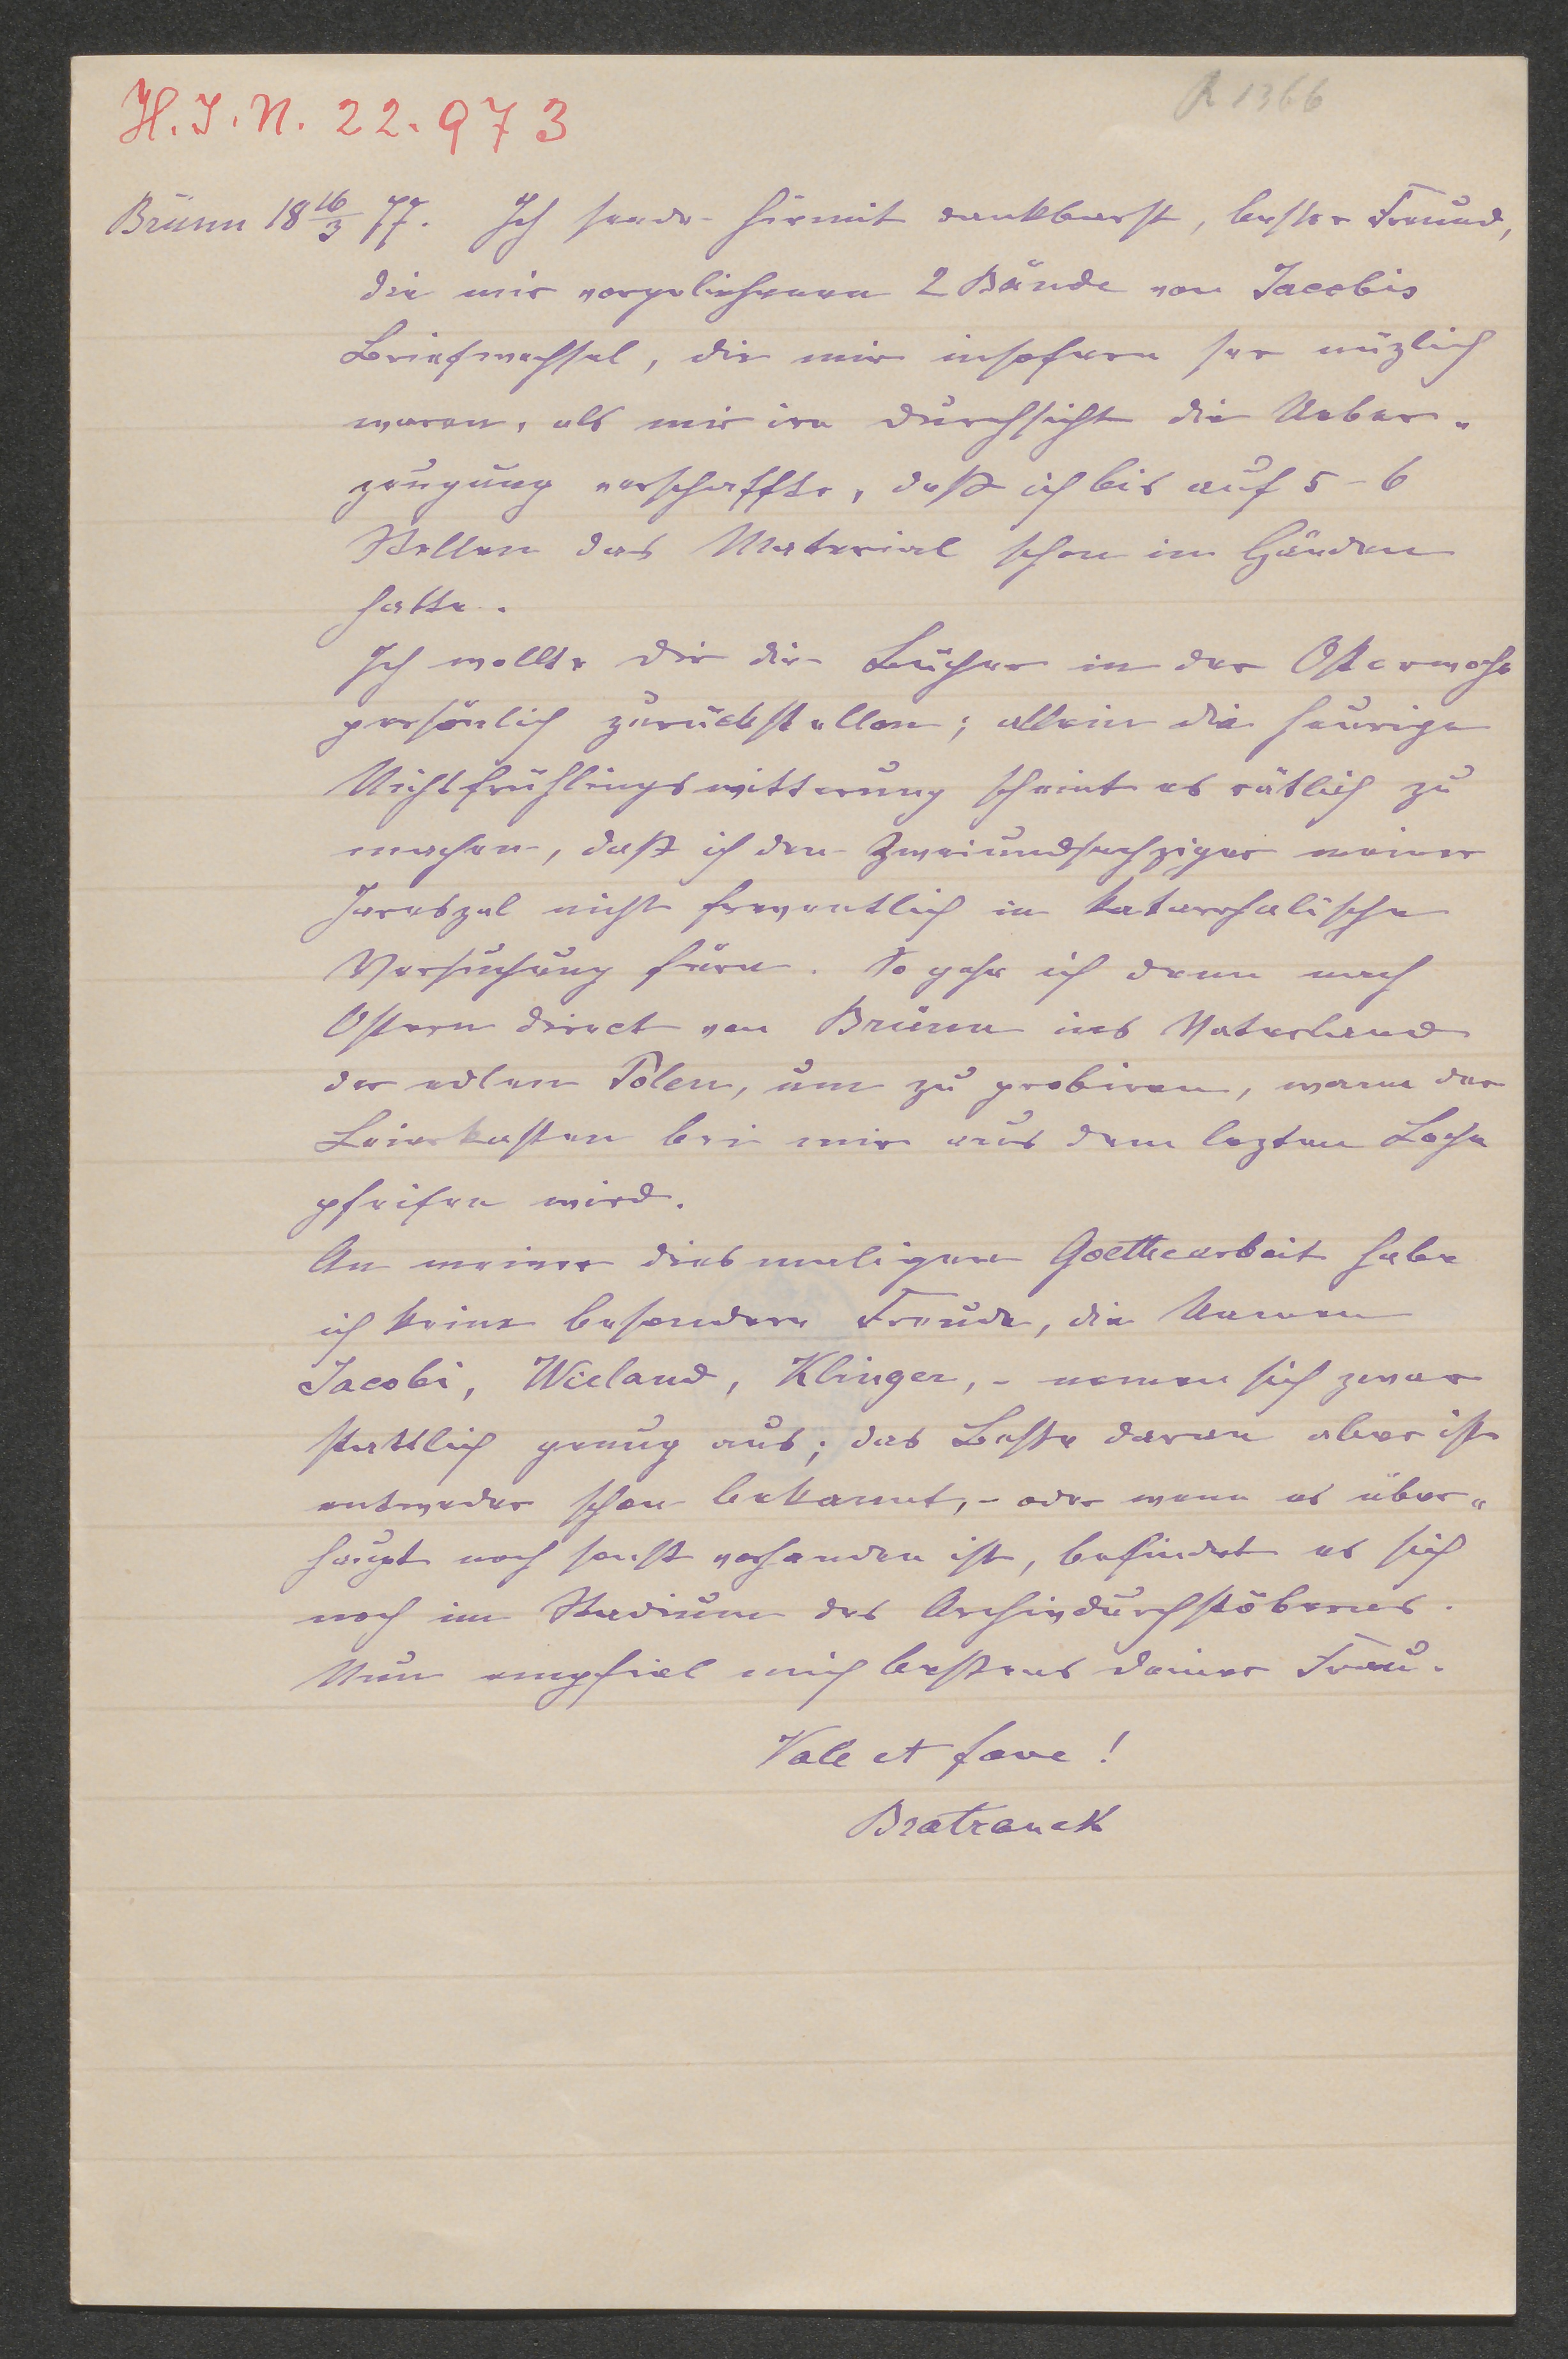 H.I.N. 22.973
R 1366
Brünn 18 16/3 77. Ich sende hiemit dankbarst, bester Freund,
die mir vorgeliehenen 2 Bände von Jacobis
Briefwechsel, die mir insofern ser nüzlich
waren, als mir ire Durchsicht die Ueber„
zeugung verschaffte, daß ich bis auf 5–6
Stellen das Material schon in Händen
hatte.
Ich wollte dir die Bücher in der Osterwoche
persönlich zurückstellen; allein die heurige
Nichtfrühlingswitterung scheint es rätlich zu
machen, daß ich den Zweiundsechziger meiner
Jareszal nicht freventlich in katarrhalische
Versuchung füre. So gehe ich denn nach
Ostern direct von Brünn ins Vaterland
der edlen Polen, um zu probiren, wann der
Leierkasten bei mir aus dem lezten Loche
pfeifen wird.
An meiner diesmaligen Goethearbeit habe
ich keine besondere Freude, die Namen
Jacobi, Wieland, Klinger, – nemen sich zwar
stattlich genug aus; das Beste daran aber ist
entweder schon bekannt, – oder wenn es über„
haupt noch sonst vorhanden ist, befindet es sich
noch im Stadium des Archivdurchstöberns.
Nun empfiel mich bestens deiner Frau.
Vale et fave!
Bratranek